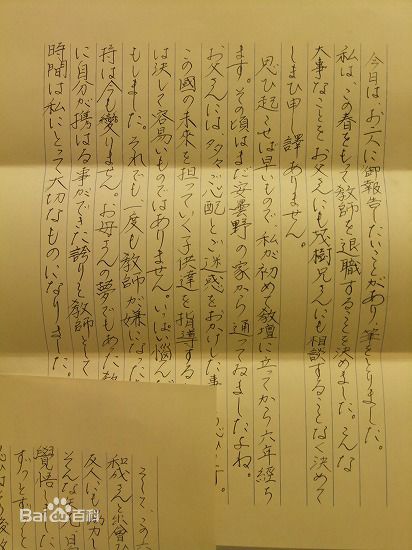 今日は、お二人に御報告したいことがあり筆をとりました。
私は、この春をもって教師を退職することを決めました。こんな
大事なことをお父さんにも茂樹兄さんにも相談することなく決めて
しまひ申し譯ありません。
思ひ起こせば早いもので、私が初めて教壇に立ってから六年経ち
ます。その頃はまだ安曇野の家から通ってゐましたよね。
お父さんには多々ご心配とご迷惑をおかけした事
この國の未来を担っていく子供達を指導する
は決して容易いものではありません。いっぱい悩ん
もしました。それでも一度も教師が嫌になった
持は今も變りません。お母さんの夢でもあった教
に自分が携はる事ができた誇りと教師として
時間は私にとって大切なものになりました。
そして、この六
和成さんと出會ひ
友人にも
そんな
覺悟
ずっとずっと
Bai百科